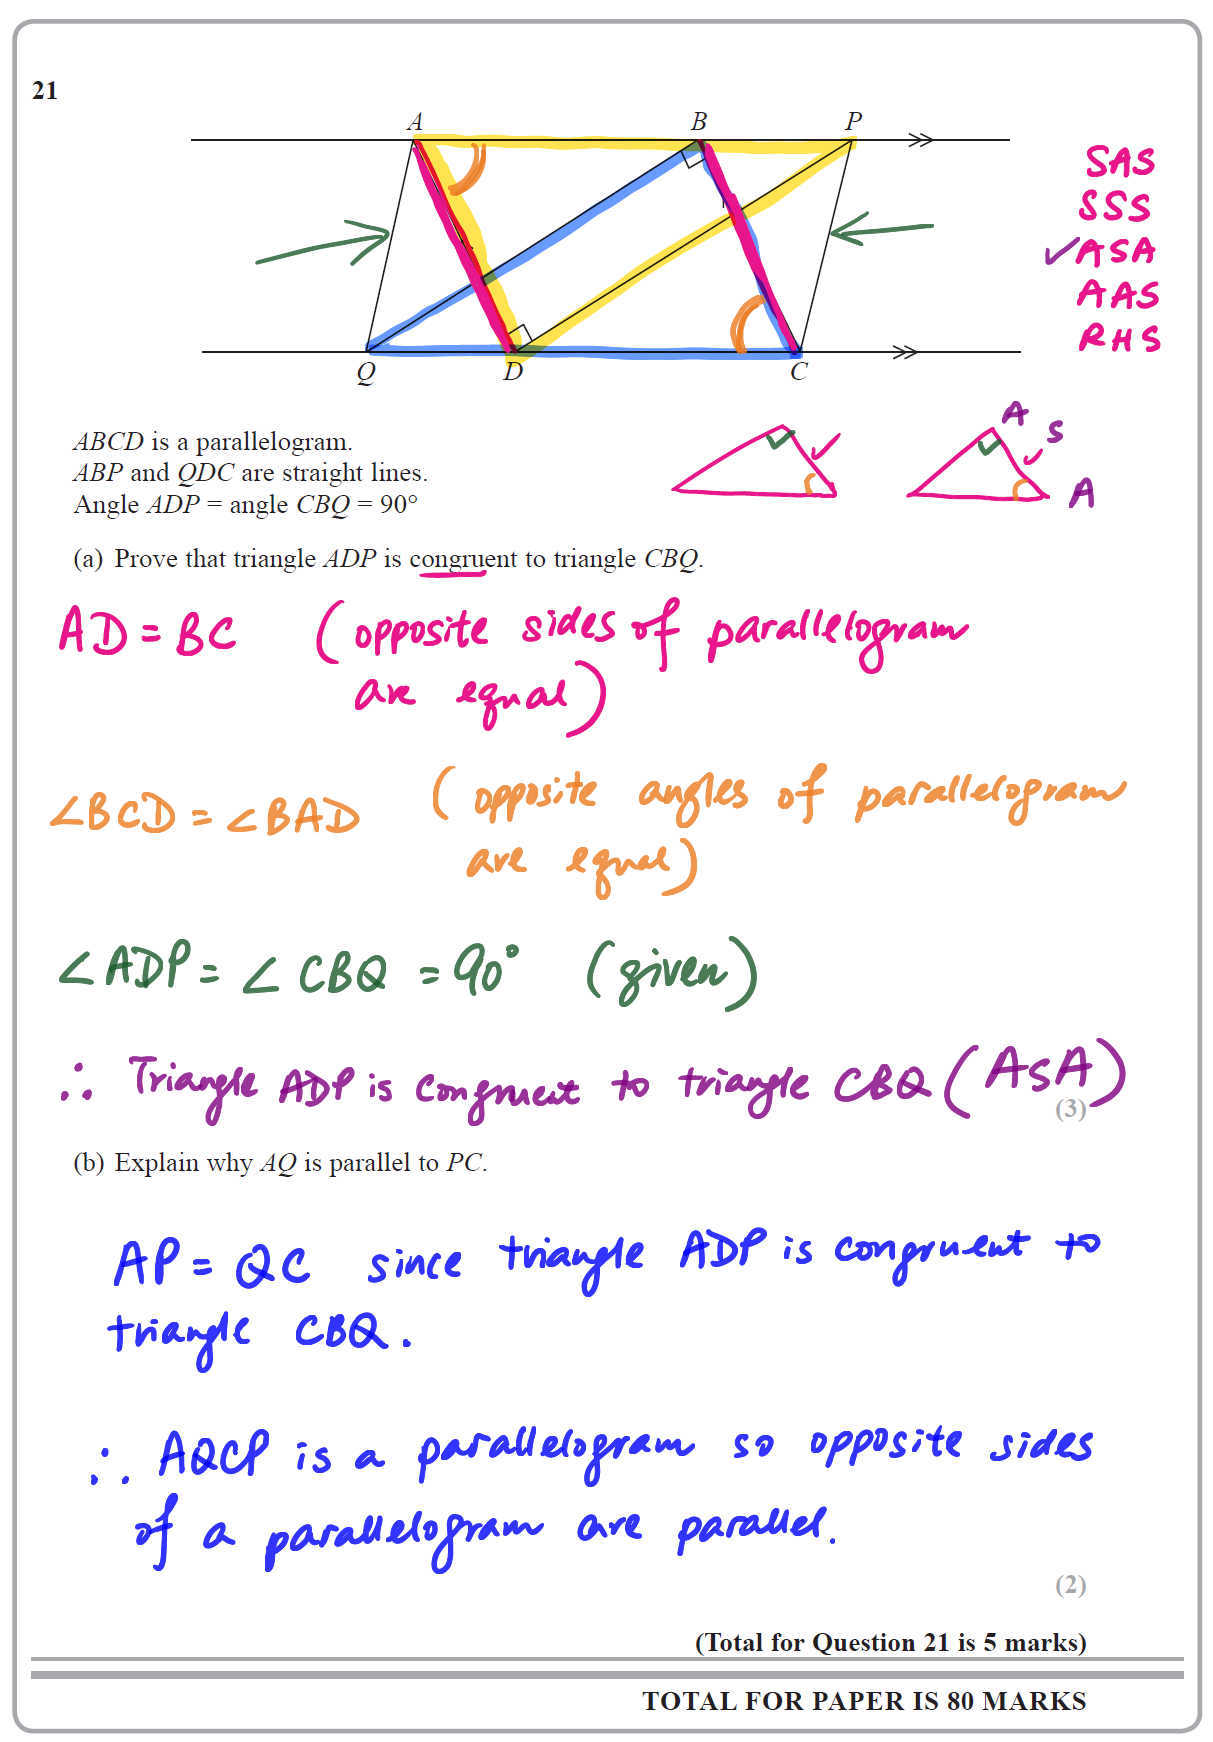 21
A B P
Q D C
SAS
SSS
✓ASA
AAS
RHS
ABCD is a parallelogram.
ABP and QDC are straight lines.
Angle ADP = angle CBQ = 90°
A
S
A
(a) Prove that triangle ADP is congruent to triangle CBQ.
AD = BC (opposite sides of parallelogram
are equal)
∠BCD = ∠BAD (opposite angles of parallelogram
are equal)
∠ADP = ∠CBQ = 90° (given)
∴ Triangle ADP is congruent to triangle CBQ (ASA)
(3)
(b) Explain why AQ is parallel to PC.
AP = QC since triangle ADP is congruent to
triangle CBQ.
∴ AQCP is a parallelogram so opposite sides
of a parallelogram are parallel.
(2)
(Total for Question 21 is 5 marks)
TOTAL FOR PAPER IS 80 MARKS